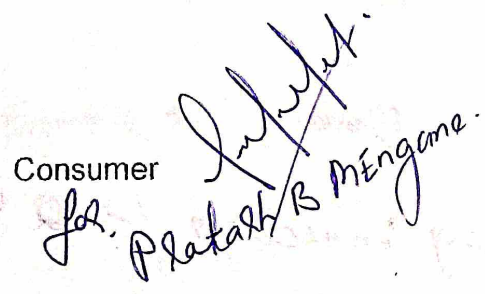 Consumer
for. Prakash B Mengane.